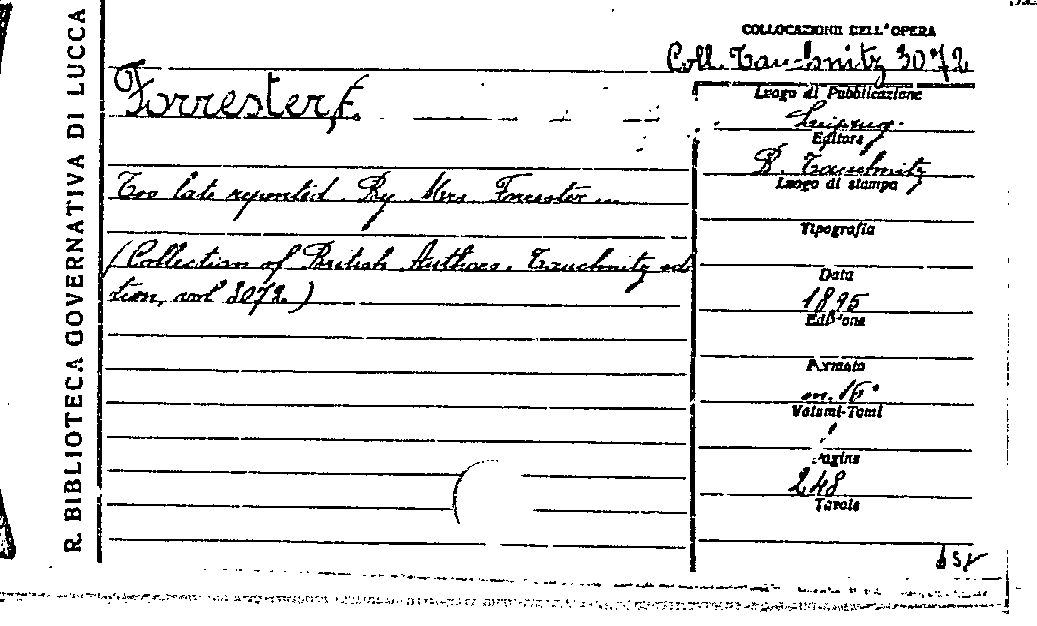 R. BIBLIOTECA GOVERNATIVA DI LUCCA
COLLOCAZIONE DELL'OPERA
Coll. Tauchnitz 3072
Forrester, F.
Too late reported. By Mrs Forrester ...
(Collection of British Authors. Tauchnitz edi
tion, vol 3072.)
Luogo di Pubblicazione
Leipzig.
Editore
B. Tauchnitz
Luogo di stampa
Tipografia
Data
1895
Edizione
Formato
in.16°
Volumi-Tomi
1
Pagine
248
Tavole